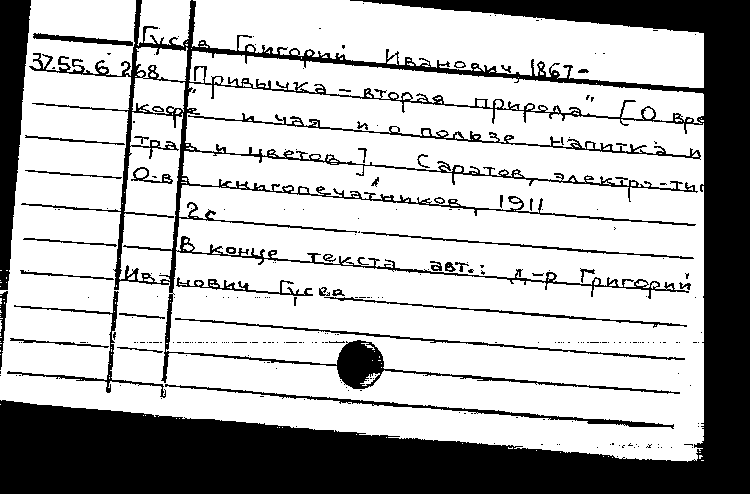 Гусев, Григорий Иванович, 1867-
37.55.6.268. "Привычка - вторая природа". [О вре
кофе и чая и о пользе напитка и
трав и цветов.]. Саратов, электро-тип
О-ва книгопечатников, 1911
2 с.
В конце текста авт.: д-р Григорий
Иванович Гусев